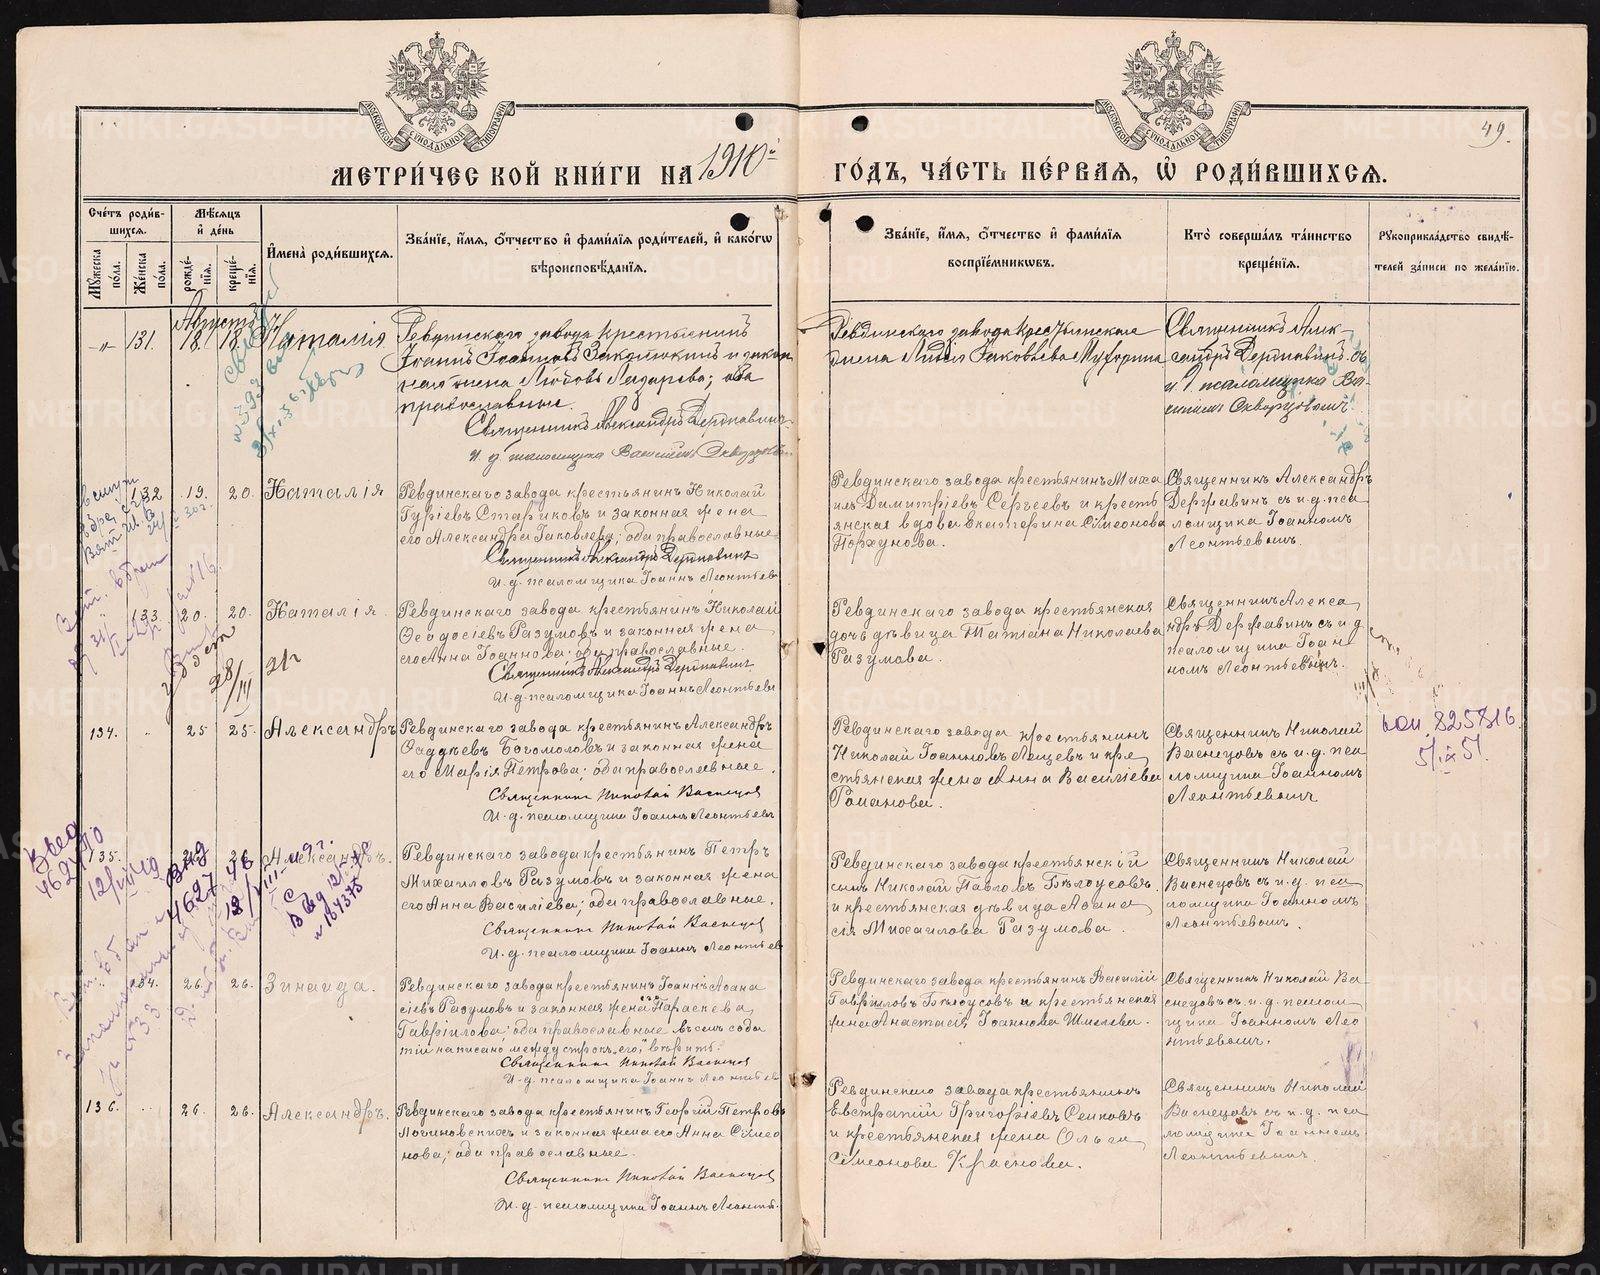 МОСКОВСКОЙ СѴНОДАЛЬНОЙ ТИПОГРАФІИ
МОСКОВСКОЙ СѴНОДАЛЬНОЙ ТИПОГРАФІИ
49.
МЕТРИ́ЧЕСКОЙ КНИ́ГИ НА 1910й ГО́ДЪ, ЧА́СТЬ ПЕ́РВАѦ, Ѡ҆ РОДИ́ВШИХСѦ.
Сче́тъ роди́в-
шихсѧ.
Мꙋ́жеска по́ла.
Же́нска по́ла.
Мѣ́сѧцъ
и҆ де́нь
рожде́-нїѧ.
креще́-нїѧ.
И҆мена̀ роди́вшихсѧ.
Зва́нїе, и҆́мѧ, ѻ҆́тчество и҆ фами́лїѧ роди́телей, и҆ како́гѡ
вѣроисповѣ́данїѧ.
Зва́нїе, и҆́мѧ, ѻ҆́тчество и҆ фами́лїѧ
воспрїе́мникѡвъ.
Кто̀ соверша́лъ та́инство
креще́нїѧ.
Рꙋкоприкла́дство свидѣ́-
телей за́писи по жела́нїю.
Августъ
131. 18. 18. Наталія
Ревдинскаго завода крестьянинъ
Іоаннъ Іоанновъ и закон-
ная жена Любовь Лазарева; оба
православные.
Священникъ Александръ Державинъ
И. д. псаломщика Василій Скворцовъ
Ревдинскаго завода крестьянская
жена Лидія Іаковлева
Священникъ Алек-
сандръ Державинъ съ
и. д. псаломщика Ва-
силіемъ Скворцовымъ.
132 19. 20. Наталія
Ревдинскаго завода крестьянинъ Николай
Гуріевъ Стариковъ и законная жена
его Александра Іаковлева; оба православные
Священникъ Александръ Державинъ
И. д. псаломщика Іоаннъ Леонтьевъ
Ревдинскаго завода крестьянинъ Миха
илъ Димитріевъ Сергеевъ и кресть
янская вдова Екатерина Симеонова
Порхунова.
Священникъ Александръ
Державинъ съ и. д. пса
ломщика Іоанномъ
Леонтьевымъ.
133 20. 20. Наталія.
Ревдинскаго завода крестьянинъ Николай
Ѳеодосіевъ Разумовъ и законная жена
его Анна Іоаннова; оба православные.
Священникъ Александръ Державинъ
И. д. псаломщика Іоаннъ Леонтьевъ
Ревдинскаго завода крестьянская
дочь дѣвица Татіана Николаева
Разумова.
Священникъ Алекса
ндръ Державинъ съ и. д.
псаломщика Іоан
номъ Леонтьевымъ.
28/III
134. „ 25 25. Александръ
Ревдинскаго завода крестьянинъ Александръ
Ѳаддѣевъ Богомоловъ и законная жена
его Марія Петрова; оба православные.
Священникъ Николай Васнецовъ
И. д. псаломщика Іоаннъ Леонтьевъ
Ревдинскаго завода крестьянинъ
Николай Іоанновъ Лещевъ и кре
стьянская жена Анна Василіева
Романова.
Священникъ Николай
Васнецовъ съ и. д. пса
ломщика Іоанномъ
Леонтьевымъ
825816.
5/IX 51.
135. 26. Александръ.
Ревдинскаго завода крестьянинъ Петръ
Михаиловъ Разумовъ и законная жена
его Анна Василіева; оба православные.
Священникъ Николай Васнецовъ
И. д. псаломщика Іоаннъ Леонтьевъ
Ревдинскаго завода крестьянскій
сынъ Николай Павловъ Бѣлоусовъ
и крестьянская дѣвица Аѳана
сія Михаилова Разумова.
Священникъ Николай
Васнецовъ съ и. д. пса
ломщика Іоанномъ
Леонтьевымъ.
134. 26. 26. Зинаида.
Ревдинскаго завода крестьянинъ Іоаннъ Аѳана
сіевъ Разумовъ и законная его жена Параскева
Гавріилова; оба православные. въ семъ собы
тіи написано между строкъ „его", вѣрить.
Священникъ Николай Васнецовъ
И. д. псаломщика Іоаннъ Леонтьевъ
Ревдинскаго завода крестьянинъ Василій
Гавріиловъ Бѣлоусовъ и крестьянская
жена Анастасія Іоаннова Шмелева.
Священникъ Николай Ва
снецовъ съ и. д. псалом
щика Іоанномъ Лео
нтьевымъ.
136. „ 26. 26. Александръ.
Ревдинскаго завода крестьянинъ Георгій Петровъ
Логиновскихъ и законная жена его Анна Симео
нова; оба православные.
Священникъ Николай Васнецовъ
И. д. псаломщика Іоаннъ Леонтьевъ
Ревдинскаго завода крестьянинъ
Евстратій Григоріевъ Сенковъ
и крестьянская жена Ольга
Симеонова Краснова.
Священникъ Николай
Васнецовъ съ и. д. пса
ломщика Іоанномъ
Леонтьевымъ.
METRIKI.GASO-URAL.RU